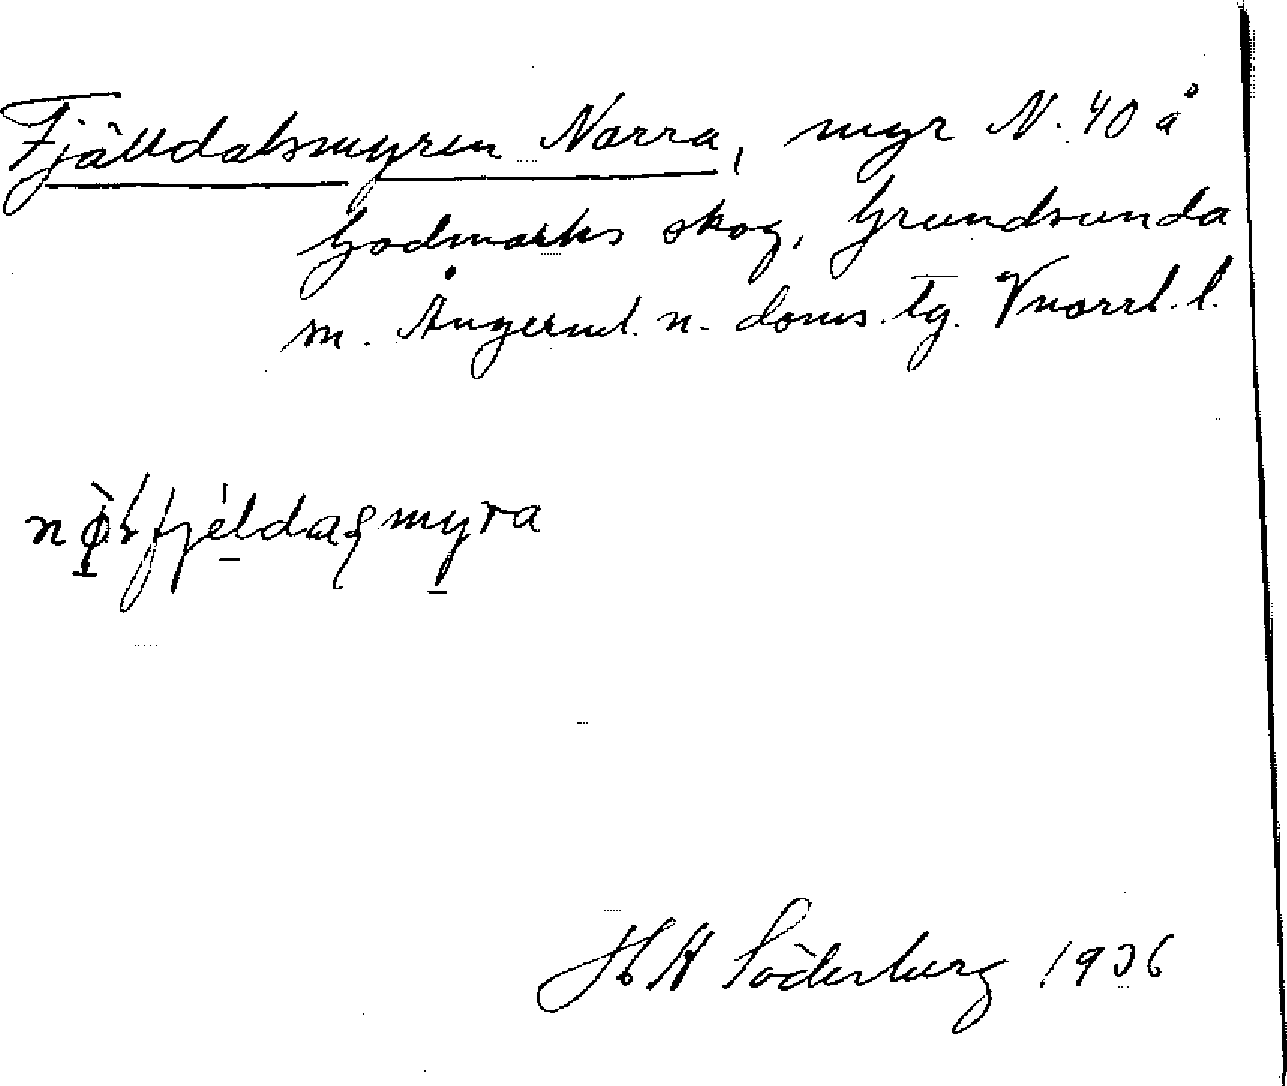 Fjälldalsmyren Norra, myr N. 40 å
Godmarks skog, Grundsunda
sn. Ångerml. n. doms. tg. Vnorrl. l.
myra
H H Söderberg 1936